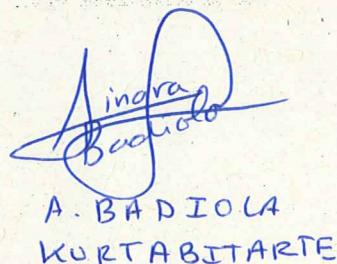 Ainara
Badiola
A. BADIOLA
KURTABITARTE